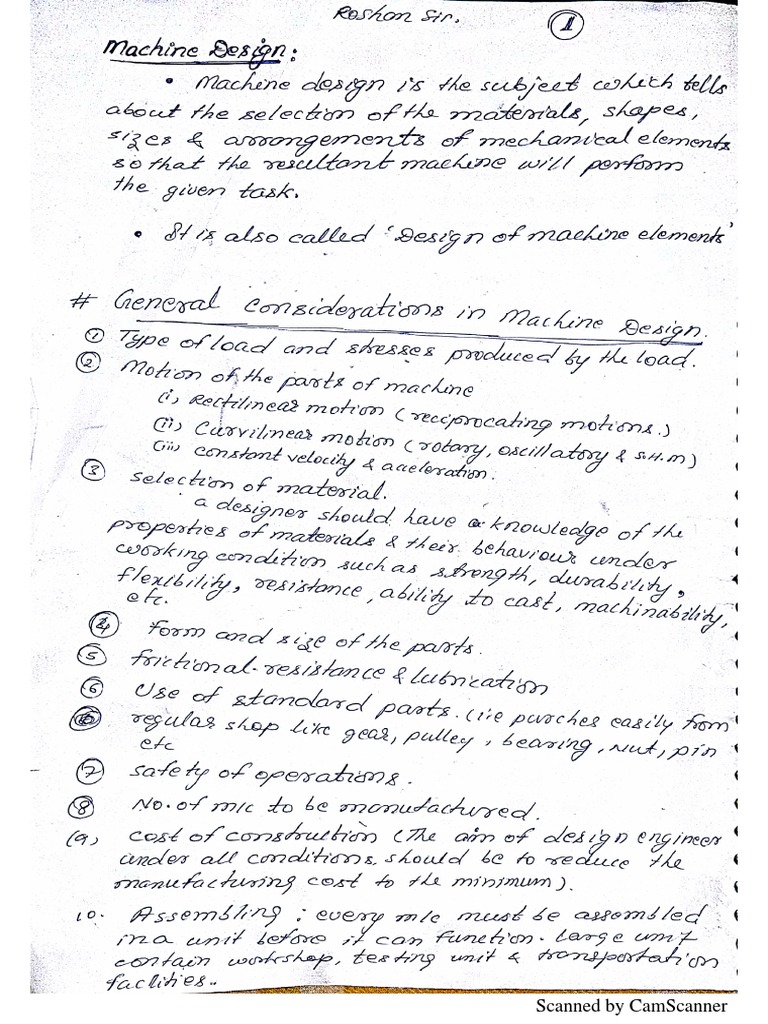 Roshan Sir.
1
Machine Design:
• Machine design is the subject which tells
about the selection of the materials, shapes,
sizes & arrangements of mechanical elements
so that the resultant machine will perform
the given task.
• It is also called 'Design of machine elements'
# General Considerations in Machine Design.
① Type of load and stresses produced by the load.
② Motion of the parts of machine
(i) Rectilinear motion (reciprocating motions.)
(ii) Curvilinear motion (rotary, oscillatory & S.H.M)
(iii) constant velocity & acceleration.
③ selection of material.
a designer should have a knowledge of the
properties of materials & their behaviour under
working condition such as strength, durability,
flexibility, resistance, ability to cast, machinability,
etc.
④ Form and size of the parts.
⑤ frictional-resistance & lubrication
⑥ Use of standard parts. (i.e purches easily from
regular shop like gear, pulley, bearing, Nut, pin
etc
⑦ safety of operations.
⑧ No. of m/c to be manufactured.
(9) cost of construction (The aim of design engineer
under all conditions, should be to reduce the
manufacturing cost to the minimum).
10. Assembling : every m/c must be assembled
in a unit before it can function. large unit
contain workshop, testing unit & transportation
faclities..
Scanned by CamScanner